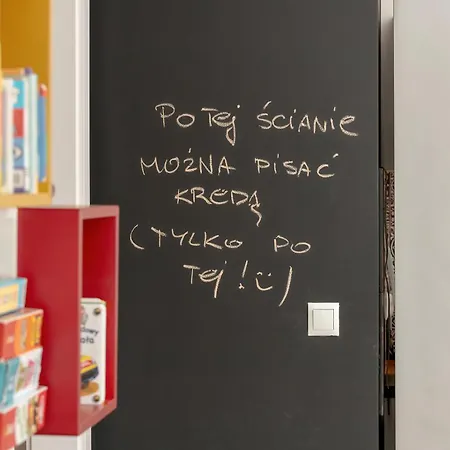 Po Tej ścianie
można pisać
kredą
(tylko po
tej! :))